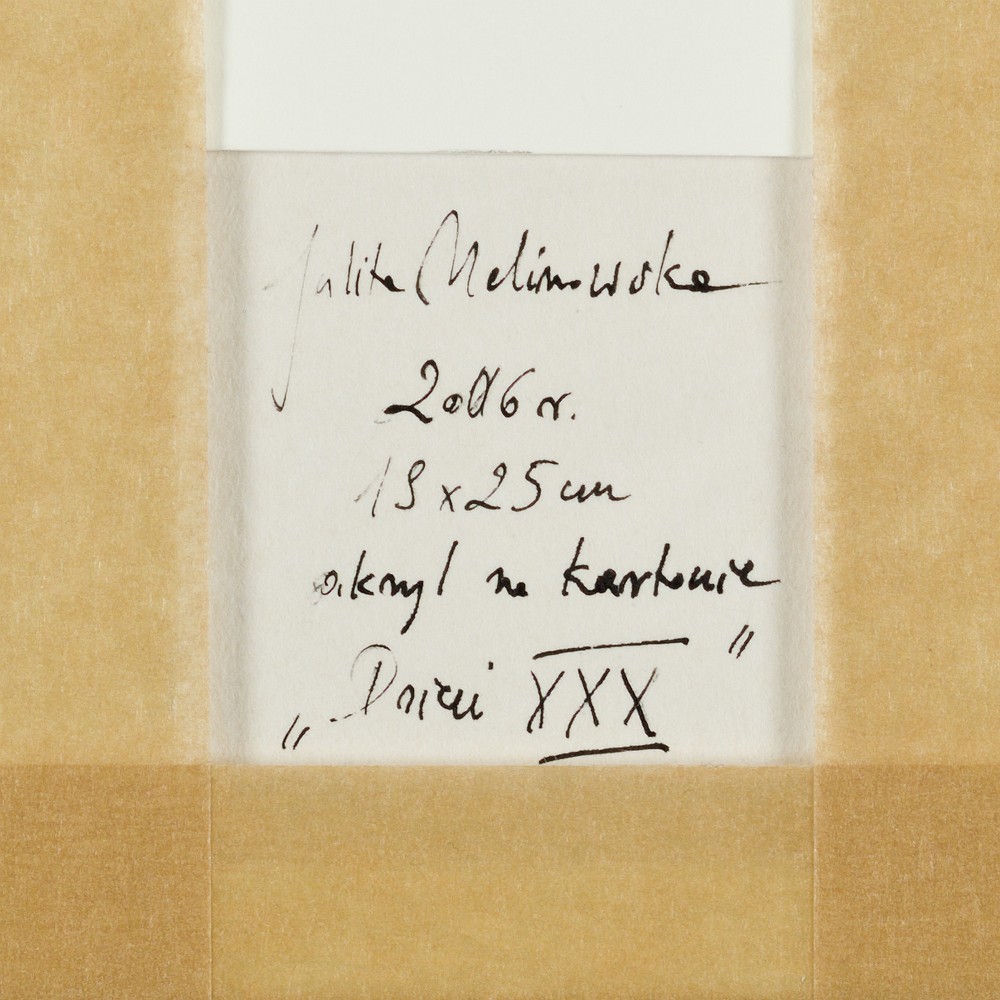 Julita Malinowska
2006 r.
19 x 25 cm
akryl na kartonie
„Dzień XXX”